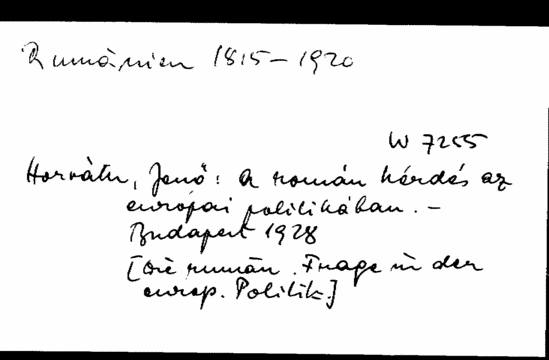 Rumänien 1815-1920
W 7255
Horváth, Jenő: A román kérdés az
európai politikában. -
Budapest 1928
[Die rumän. Frage in der
europ. Politik.]